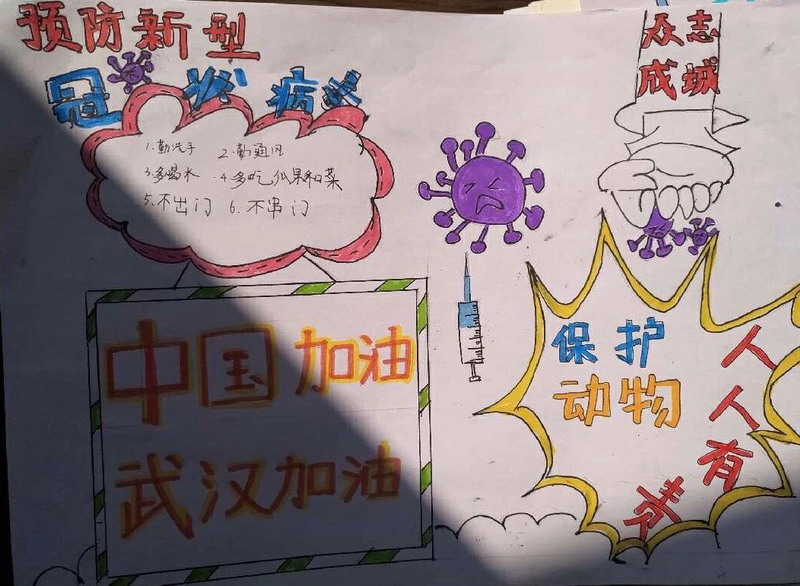 预防新型
冠状病毒
众志
成城
1.勤洗手 2.勤通风
3.多喝水 4.多吃瓜果和菜
5.不出门 6.不串门
中国加油
武汉加油
保护
动物
人人有责